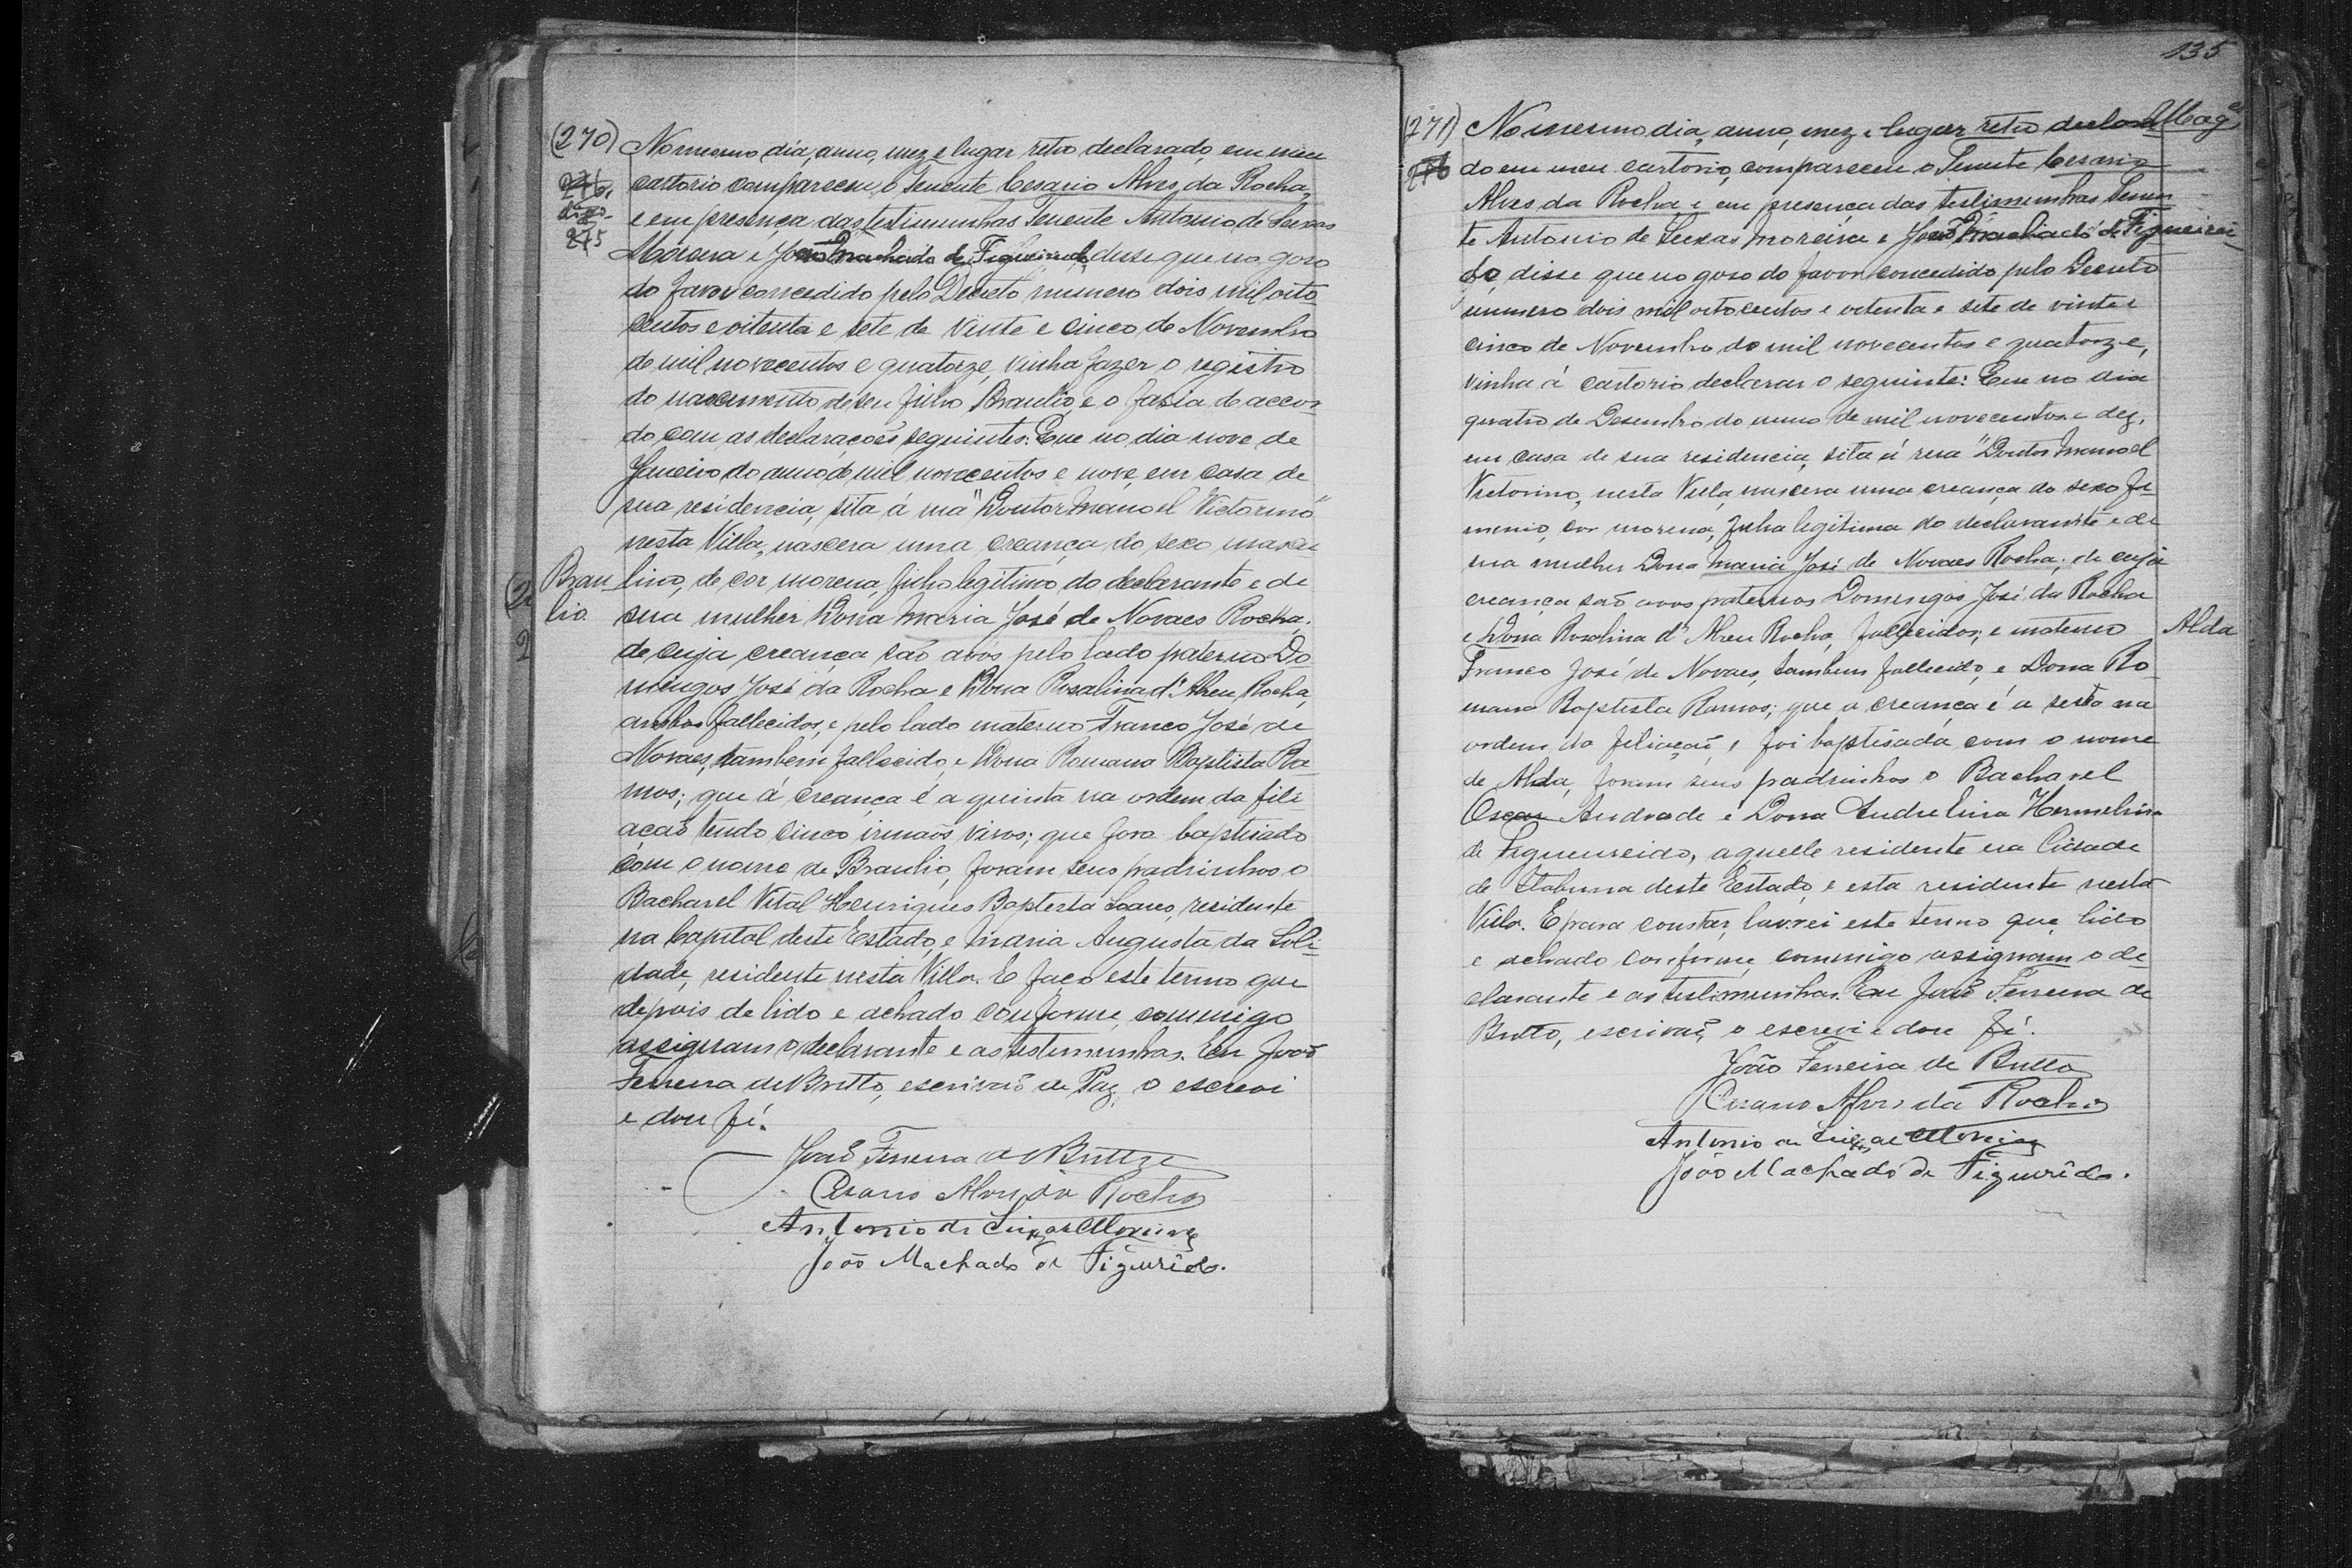 (270)
No mesmo dia, anno, mez e lugar retro declarado, em meu
276,
digo
275
cartorio compareceu o Tenente Cesario Alves da Rocha,
e em presença das testimunhas Tenente Antonio de Seixas
Moreira e João Machado de Figueiredo, disse que no goso
do favor concedido pelo Decreto numero dois mil oito
centos e oitenta e sete de vinte e cinco de Novembro
de mil novecentos e quatorze, vinha fazer o registro
do nascimento de seu filho Braulio, e o fasia de accor
do com as declarações seguintes: Que no dia nove de
Janeiro do anno de mil novecentos e nove, em casa de
sua residencia, sita á rua "Doutor Manoel Victorino"
nesta Villa, nascera uma creança do sexo mascu
Brau
lio.
lino, de cor morena, filho legitimo do declarante e de
sua mulher Dona Maria José de Novaes Rocha.
de cuja creança são avós pelo lado paterno Do
mingos José da Rocha e Dona Rosalina d'Abreu Rocha,
ambos fallecidos, e pelo lado materno Franco José de
Novaes, tambem fallecido, e Dona Romana Baptista Ra
mos; que a creança é a quinta na ordem da fili
ação tendo cinco irmãos vivos; que fora baptisado
com o nome de Braulio, foram seus padrinhos o
Bacharel Vital Henriques Baptista Soares, residente
na Capital deste Estado, e Maria Augusta da Soli
dade, residente nesta Villa. E faço este termo que
depois de lido e achado conforme, commigo
assignam o declarante e as testimunhas. Eu João
Ferreira de Britto, escrivão de Paz, o escrevi
e dou fé.
João Ferreira de Britto
Cesario Alves da Rocha
Antonio de Seixas Moreira
João Machado de Figueirêdo.
135
(271)
No mesmo dia, anno, mez e lugar retro declara
276
do em meu cartorio, compareceu o Tenente Cesario
Alves da Rocha e em presença das testimunhas Tenen
te Antonio de Seixas Moreira e João Machado de Figueirei
do, disse que no goso do favor concedido pelo Decreto
numero dois mil oitocentos e oitenta e sete de vinte e
cinco de Novembro de mil novecentos e quatorze,
vinha á cartorio declarar o seguinte: Que no dia
quatro de Desembro do anno de mil novecentos e dez,
em casa de sua residencia, sita á rua "Doutor Manoel
Victorino, nesta Villa, nascera uma creança do sexo fe
menio, cor morena, filha legitima do declarante e de
sua mulher Dona Maria José de Novaes Rocha; de cuja
creança são avos paternos Domingos José da Rocha
e Dona Rosalina d'Abreu Rocha, fallecidos; e materno
Alda
Franco José de Novaes, tambem fallecido, e Dona Ro
mana Baptista Ramos; que a creança é a sexta na
ordem da filiação, e foi baptisada com o nome
de Alda, foram seus padrinhos o Bacharel
Oscar Andrade e Dona Andrelina Hermelina
de Figueireido, aquelle residente na Cidade
de Itabuna deste Eestado, e esta residente nesta
Villa. E para constar, lavrei este termo que, lido
e achado conforme, commigo assignam o de
clarante e as testimunhas. Eu João Ferreira de
Britto, escrivão, o escrevi e dou fé.
João Ferreira de Britto
Cesario Alves da Rocha
Antonio de Seixas Moreira
João Machado de Figueirêdo.